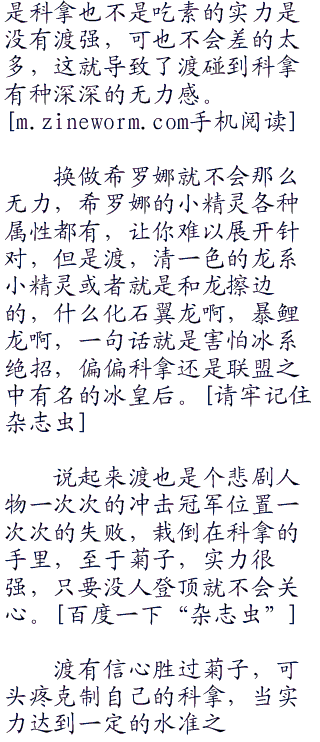 是科拿也不是吃素的实力是
没有渡强，可也不会差的太
多，这就导致了渡碰到科拿
有种深深的无力感。
[m.zineworm.com手机阅读]
换做希罗娜就不会那么
无力，希罗娜的小精灵各种
属性都有，让你难以展开针
对，但是渡，清一色的龙系
小精灵或者就是和龙擦边
的，什么化石翼龙啊，暴鲤
龙啊，一句话就是害怕冰系
绝招，偏偏科拿还是联盟之
中有名的冰皇后。[请牢记住
杂志虫]
说起来渡也是个悲剧人
物一次次的冲击冠军位置一
次次的失败，栽倒在科拿的
手里，至于菊子，实力很
强，只要没人登顶就不会关
心。[百度一下“杂志虫”]
渡有信心胜过菊子，可
头疼克制自己的科拿，当实
力达到一定的水准之